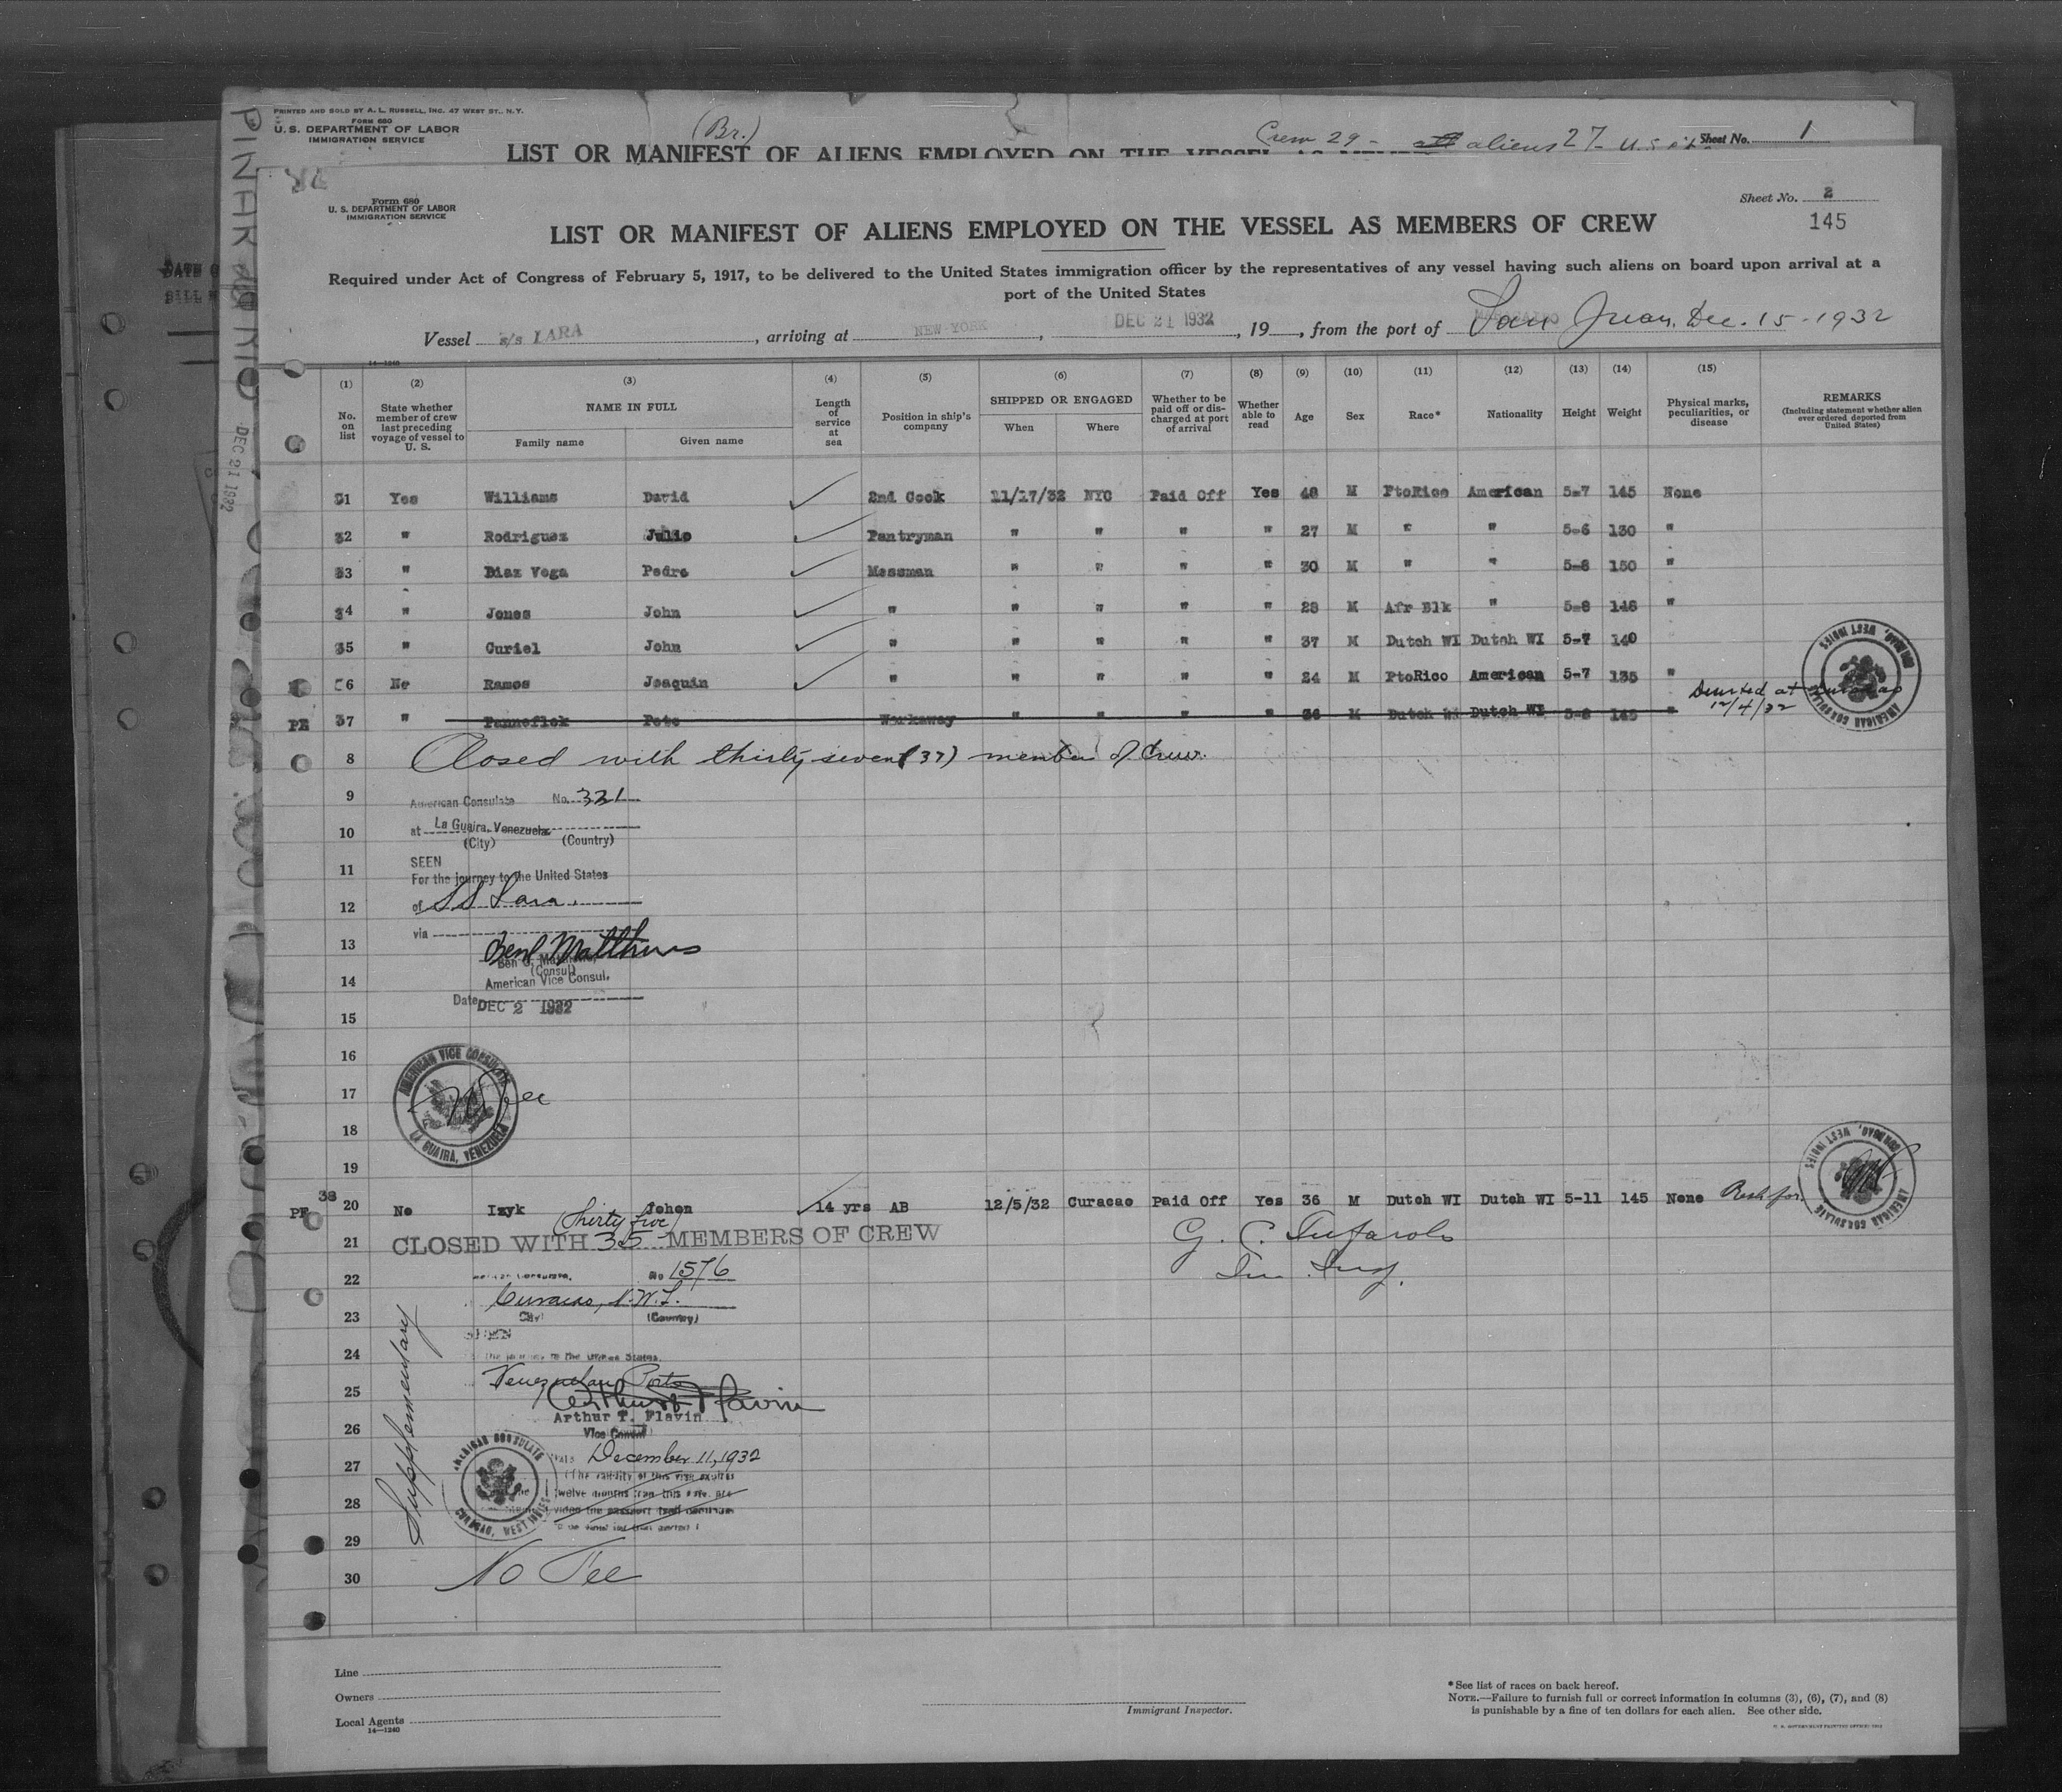 PRINTED AND SOLD BY A. L. RUSSELL, INC. 47 WEST ST., N.Y.
FORM 680
U. S. DEPARTMENT OF LABOR
IMMIGRATION SERVICE
(Br.)
Crew 29 - aliens 27 - U.S.
Sheet No. 1
LIST OR MANIFEST OF ALIENS EMPLOYED ON THE VESSEL AS
PINAR DEL RIO
DEC 21 1932
Form 680
U. S. DEPARTMENT OF LABOR
IMMIGRATION SERVICE
Sheet No. 2
145
LIST OR MANIFEST OF ALIENS EMPLOYED ON THE VESSEL AS MEMBERS OF CREW
Required under Act of Congress of February 5, 1917, to be delivered to the United States immigration officer by the representatives of any vessel having such aliens on board upon arrival at a
port of the United States
Vessel s/s LARA, arriving at NEW YORK, DEC 21 1932, 19, from the port of San Juan, Dec. 15-1932
14-1240
(1) (2) (3) (4) (5) (6) (7) (8) (9) (10) (11) (12) (13) (14) (15)
No. on list
State whether member of crew last preceding voyage of vessel to U. S.
NAME IN FULL
Family name
Given name
Length of service at sea
Position in ship's company
SHIPPED OR ENGAGED
When
Where
Whether to be paid off or discharged at port of arrival
Whether able to read
Age
Sex
Race*
Nationality
Height
Weight
Physical marks, peculiarities, or disease
REMARKS
(Including statement whether alien ever ordered deported from United States)
31 Yes Williams David 2nd Cook 11/17/32 NYC Paid Off Yes 48 M PtoRico American 5-7 145 None
32 " Rodriguez Julio Pantryman " " " " 27 M " " 5-6 130 "
33 " Diaz Vega Pedro Messman " " " " 30 M " " 5-8 150 "
34 " Jones John " " " " " 28 M Afr Blk " 5-8 148 "
35 " Curiel John " " " " " 37 M Dutch WI Dutch WI 5-7 140
36 No Ramos Joaquin " " " " " 24 M PtoRico American 5-7 135 "
PE 37 " Panneflek Pete Workaway " " " " 36 M Dutch WI Dutch WI 5-8 145 " Deserted at Curacao
12/4/32
AMERICAN CONSULATE CURACAO, WEST INDIES
8 Closed with thirty seven (37) member of Crew.
9 American Consulate No. 321
10 at La Guaira, Venezuela
(City) (Country)
11 SEEN
For the journey to the United States
12 of SS Lara.
via
13 Ben C. Matthews
14 (Consul)
American Vice Consul.
Date DEC 2 1932
15
16
AMERICAN VICE CONSULATE LA GUAIRA, VENEZUELA
17
18
19
AMERICAN CONSULATE CURACAO, WEST INDIES
PE 38 20 No Izyk Johon 14 yrs AB 12/5/32 Curacao Paid Off Yes 36 M Dutch WI Dutch WI 5-11 145 None
(Thirty five)
21 CLOSED WITH 35 MEMBERS OF CREW
22 No 1576
Curacao, N.W.I.
23 City (Country)
SEEN
24 the journey to the United States.
Venezuelan Ports
25 Arthur T. Flavin
Arthur T. Flavin
26 Vice Consul
27 Date December 11, 1932
(The validity of this visa expires
28 twelve months from this date, pro
vided the passport itself continues
to be valid for that period)
29
30 No Fee
Supplementary
AMERICAN CONSULATE CURACAO, WEST INDIES
Line
Owners
Local Agents
14-1240
Immigrant Inspector.
*See list of races on back hereof.
NOTE.—Failure to furnish full or correct information in columns (3), (6), (7), and (8)
is punishable by a fine of ten dollars for each alien. See other side.